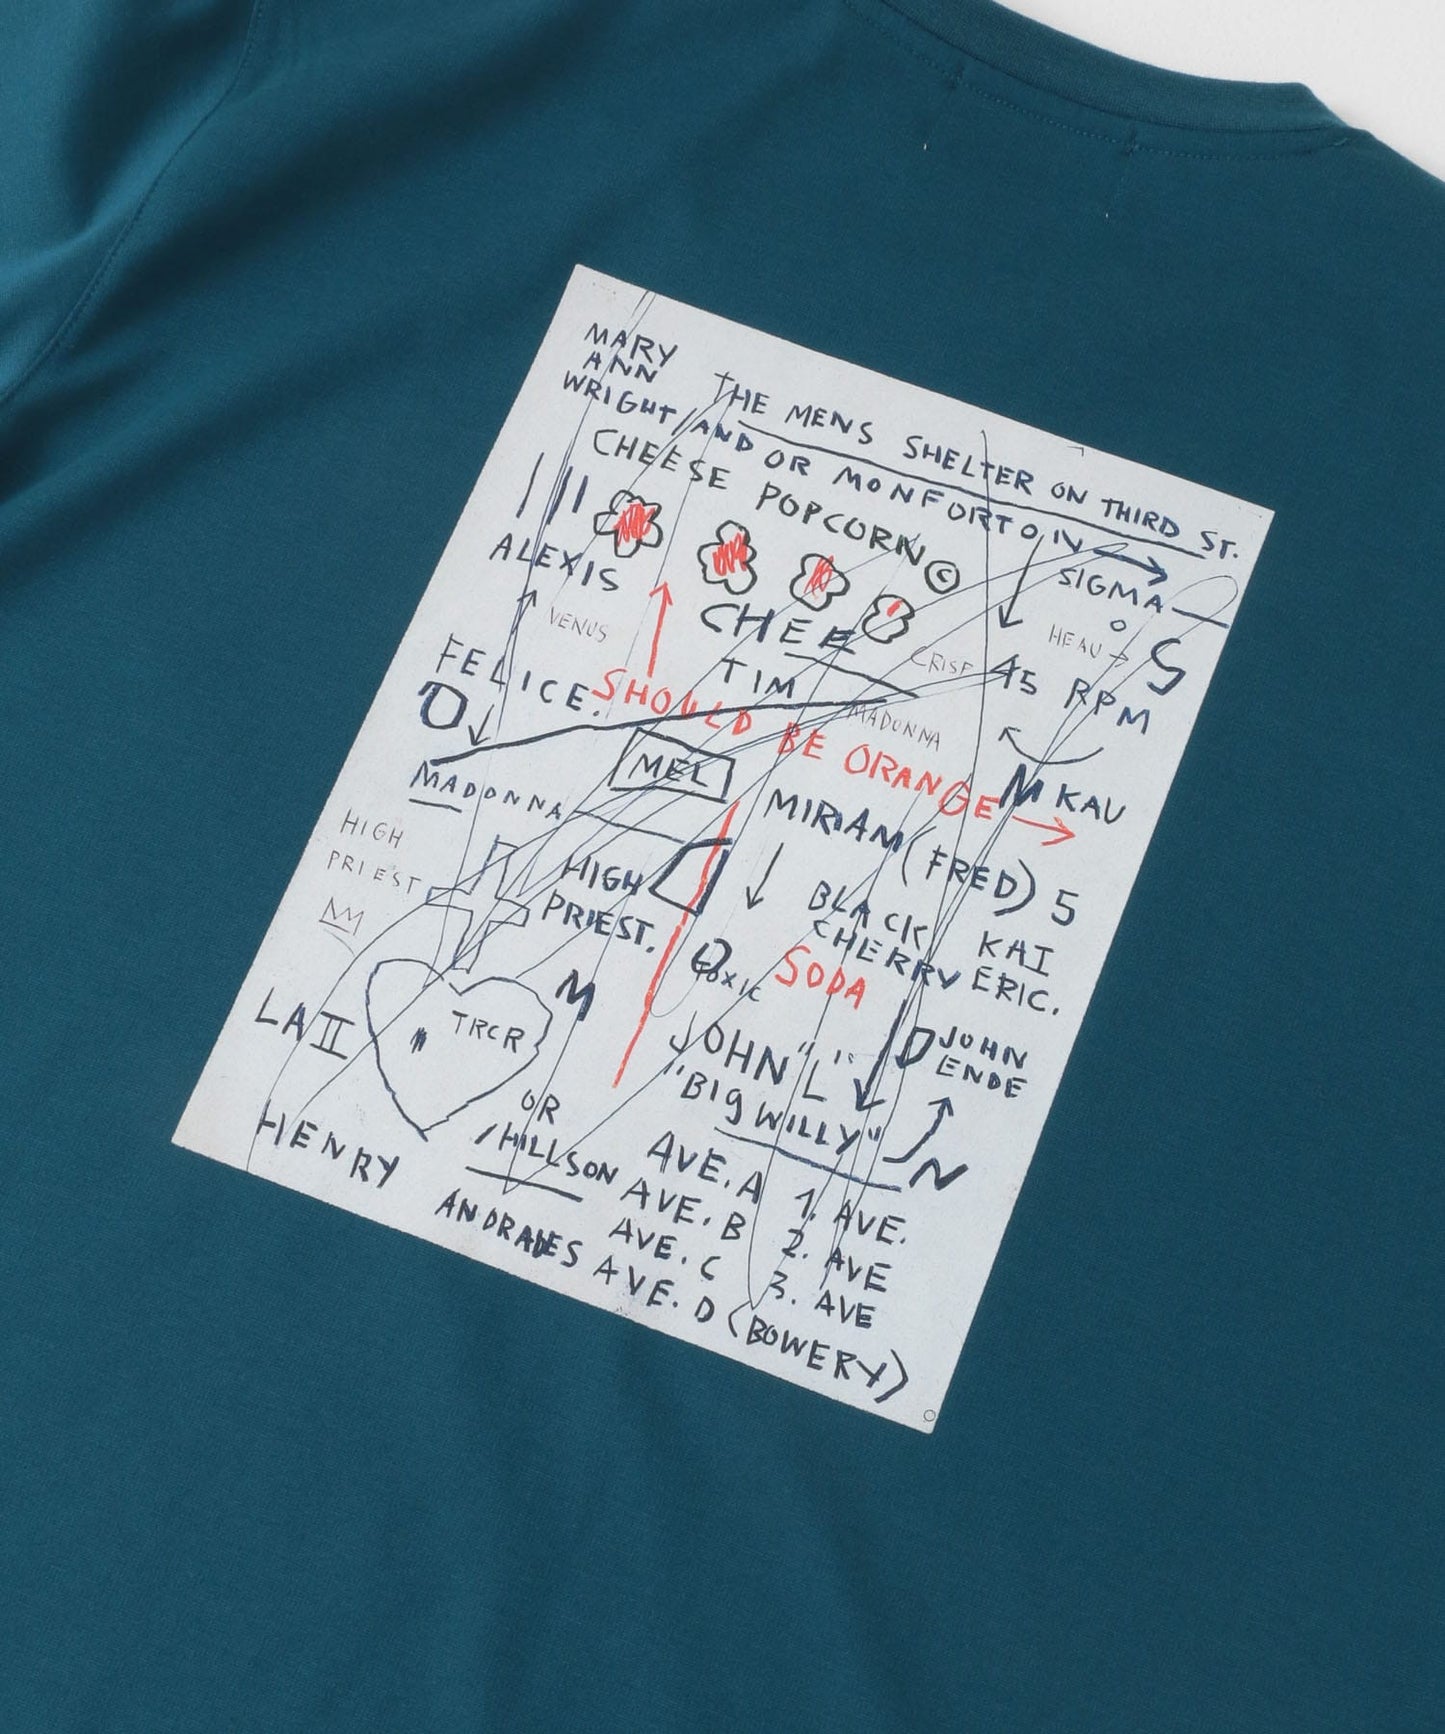 MARY
ANN
WRIGHT/AND OR MONFORTON
THE MENS SHELTER ON THIRD ST.
CHEESE POPCORN ©
SIGMA
ALEXIS
VENUS
CHEE
HEAU
S
CRISF
45 RPM
FELICE.
TIM
MADONNA
SHOULD BE ORANGE
D
MEL
M KAU
MADONNA
MIRIAM (FRED) 5
HIGH
PRIEST
HIGH
PRIEST.
BLACK
CHERRY
SODA
KAI
ERIC.
TOXIC
M
LA II
TRCR
JOHN "L"
"BIG WILLY"
D JOHN
ENDE
N
HENRY
OR
/HILLSON
ANDRADES
AVE. A
AVE. B
AVE. C
AVE. D (BOWERY)
1. AVE.
2. AVE
3. AVE